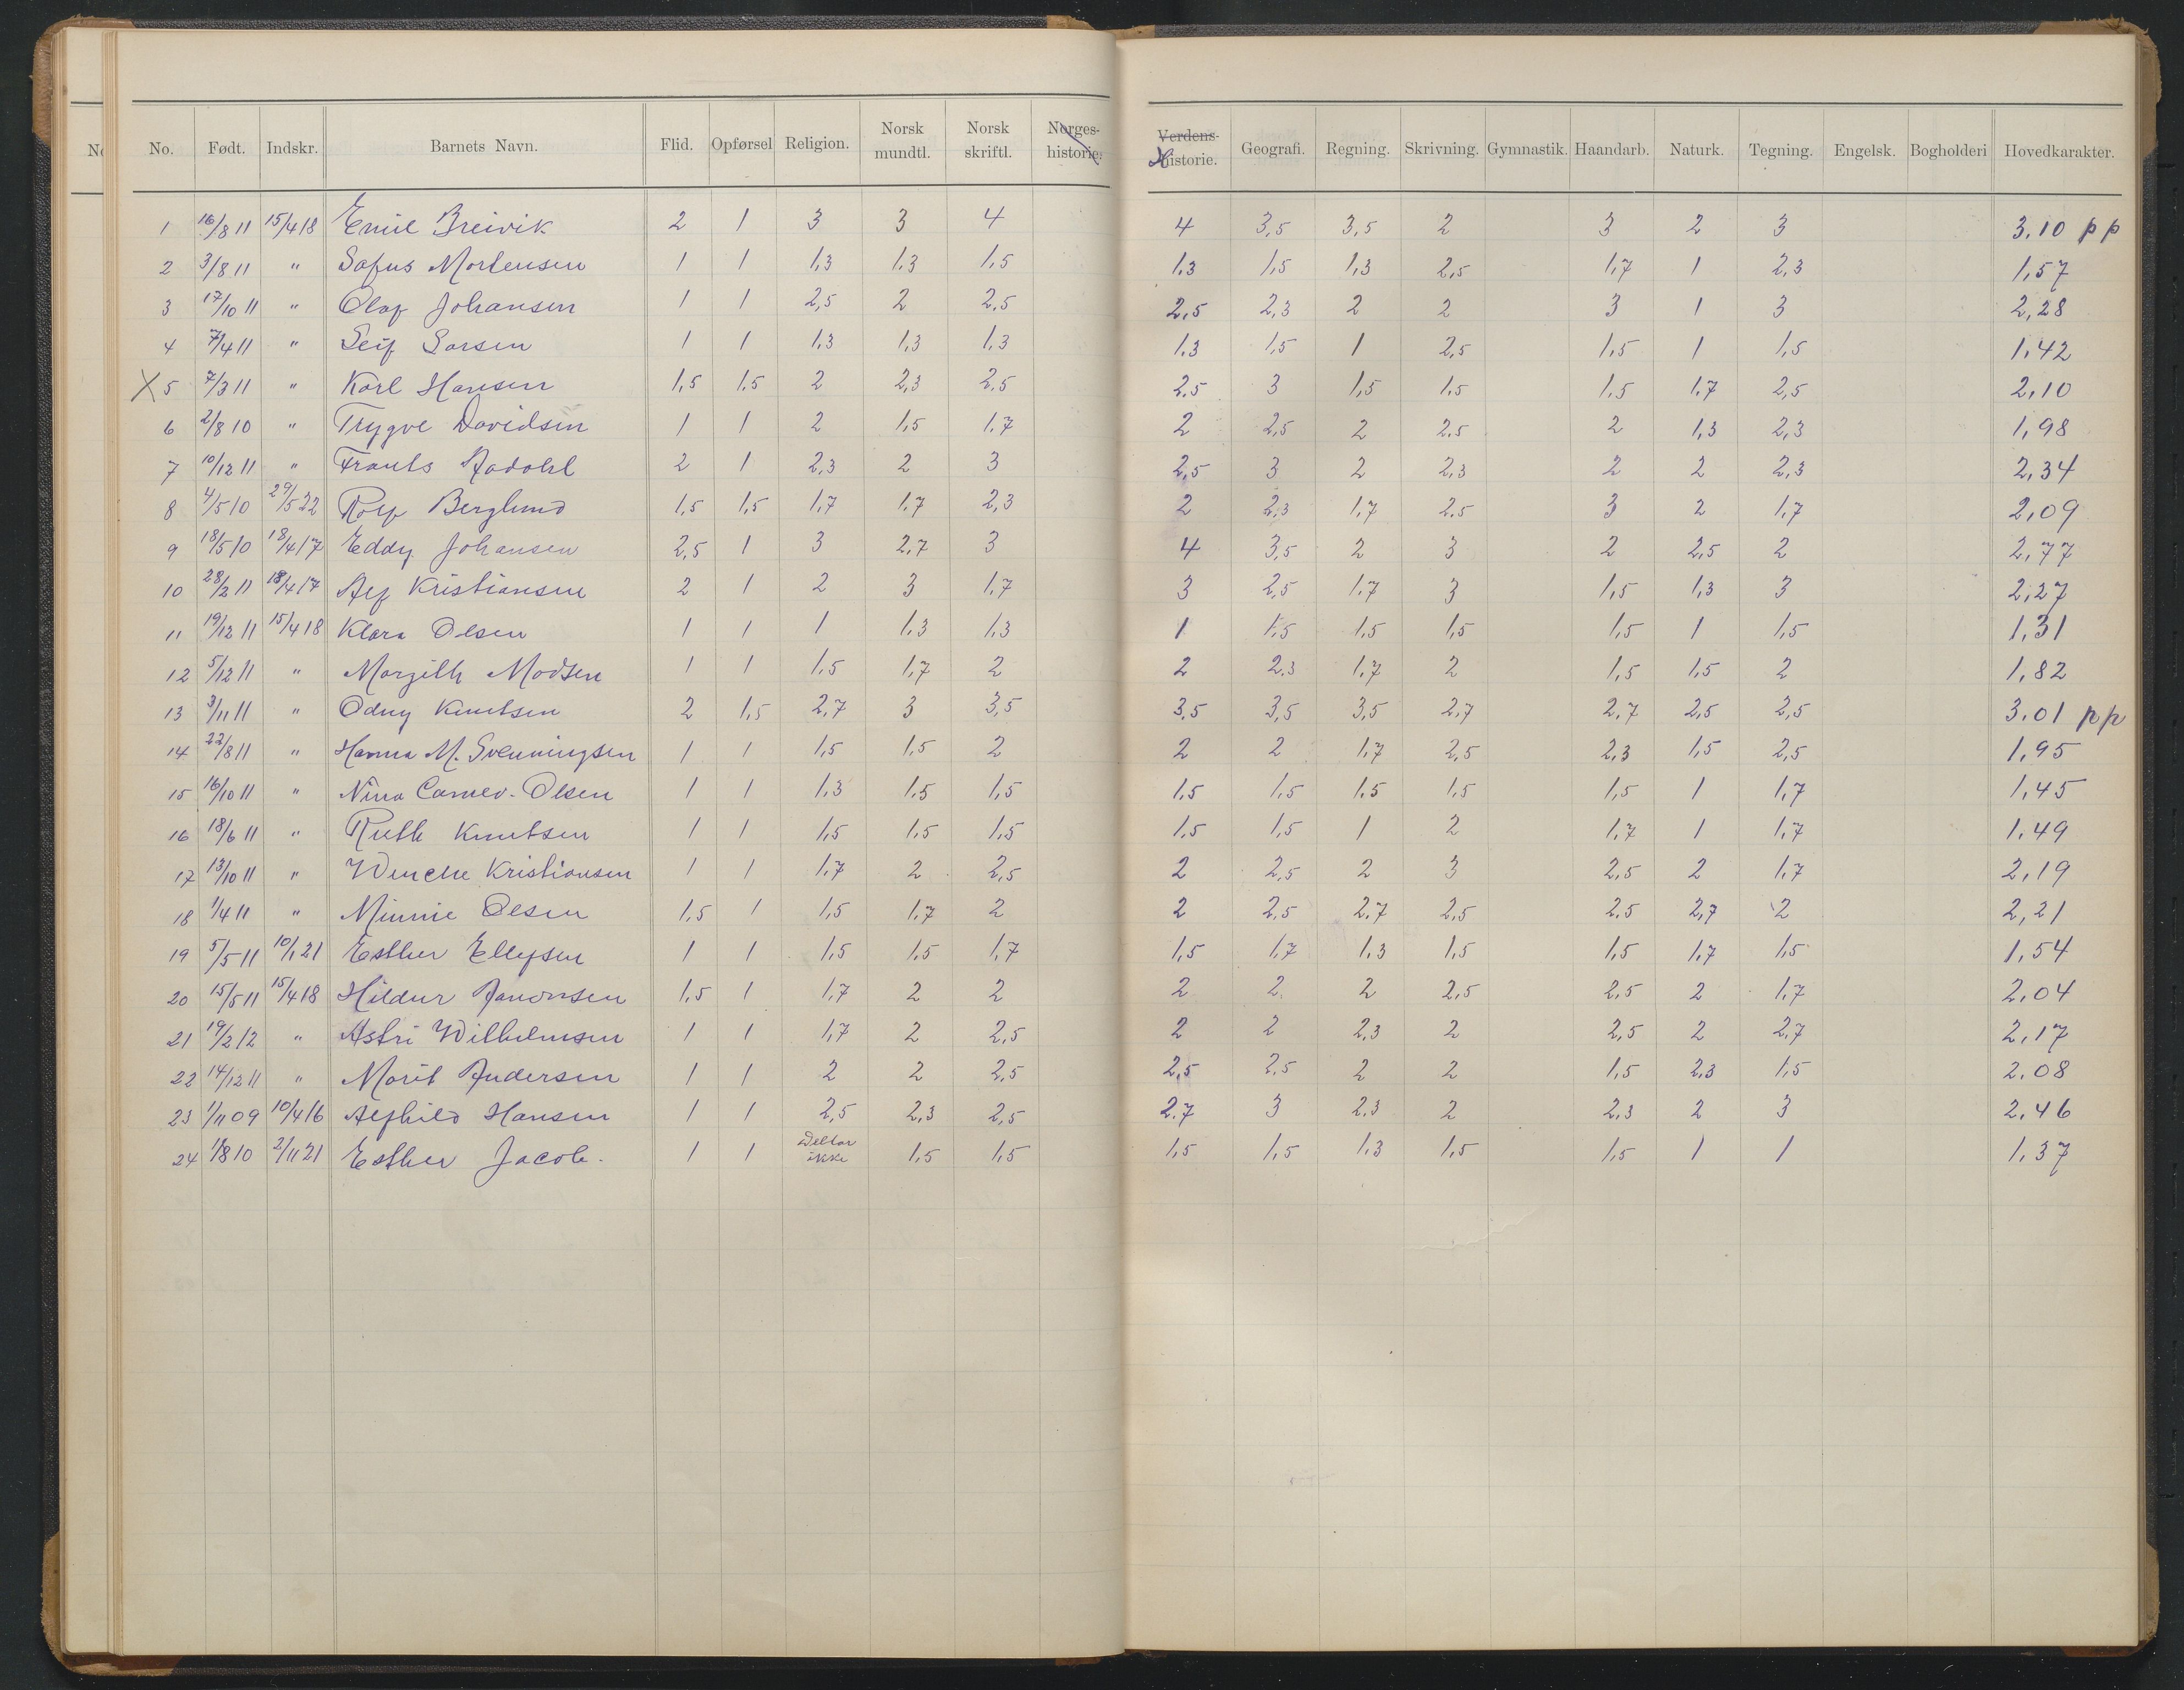 No. Født. Indskr. Barnets Navn. Flid. Opførsel Religion. Norsk mundtl. Norsk skriftl. Norges-historie. Verdens-Historie. Geografi. Regning. Skrivning. Gymnastik. Haandarb. Naturk. Tegning. Engelsk. Bogholderi Hovedkarakter.
1 16/8 11 15/4 18 Emil Breivik 2 1 3 3 4 4 3,5 3,5 2 3 2 3 3,10 pp
2 3/8 11 " Sofus Mortensen 1 1 1,3 1,3 1,5 1,3 1,5 1,3 2,5 1,7 1 2,3 1,57
3 17/10 11 " Olaf Johansen 1 1 2,5 2 2,5 2,5 2,3 2 2 3 1 3 2,28
4 7/4 11 " Leif Larsen 1 1 1,3 1,3 1,3 1,3 1,5 1 2,5 1,5 1 1,5 1,42
X 5 7/3 11 " Karl Hansen 1,5 1,5 2 2,3 2,5 2,5 3 1,5 1,5 1,5 1,7 2,5 2,10
6 2/8 10 " Trygve Davidsen 1 1 2 1,5 1,7 2 2,5 2 2,5 2 1,3 2,3 1,98
7 10/12 11 " Frants Aadahl 2 1 2,3 2 3 2,5 3 2 2,3 2 2 2,3 2,34
8 4/5 10 29/5 22 Rolf Berglund 1,5 1,5 1,7 1,7 2,3 2 2,3 1,7 2,5 3 2 1,7 2,09
9 18/5 10 18/4 17 Eddy Johansen 2,5 1 3 2,7 3 4 3,5 2 3 2 2,5 2 2,77
10 28/2 11 18/4 17 Alf Kristiansen 2 1 2 3 1,7 3 2,5 1,7 3 1,5 1,3 3 2,27
11 19/12 11 15/4 18 Klara Olsen 1 1 1 1,3 1,3 1 1,5 1,5 1,5 1,5 1 1,5 1,31
12 5/12 11 " Margith Madsen 1 1 1,5 1,7 2 2 2,3 1,7 2 1,5 1,5 2 1,82
13 3/11 11 " Odny Knutsen 2 1,5 2,7 3 3,5 3,5 3,5 3,5 2,7 2,7 2,5 2,5 3,01 pp
14 22/8 11 " Hanna M. Svenningsen 1 1 1,5 1,5 2 2 2 1,7 2,5 2,3 1,5 2,5 1,95
15 16/10 11 " Nina Olsen 1 1 1,3 1,5 1,5 1,5 1,5 1,5 1,5 1,5 1 1,7 1,45
16 18/6 11 " Ruth Knutsen 1 1 1,5 1,5 1,5 1,5 1,5 1 2 1,7 1 1,7 1,49
17 13/10 11 " Wenche Kristiansen 1 1 1,7 2 2,5 2 2,5 2 3 2,5 2 1,7 2,19
18 1/4 11 " Minnie Olsen 1,5 1 1,5 1,7 2 2 2,5 2,7 2,5 2,5 2,7 2 2,21
19 5/5 11 10/1 21 Esther Ellefsen 1 1 1,5 1,5 1,7 1,5 1,7 1,3 1,5 1,5 1,7 1,5 1,54
20 15/5 11 15/4 18 Hildur 1,5 1 1,7 2 2 2 2 2 2,5 2,5 2 1,7 2,04
21 19/2 12 " Astri Wilhelmsen 1 1 1,7 2 2,5 2 2 2,3 2 2,5 2 2,7 2,17
22 14/12 11 " Marit Andersen 1 1 2 2 2,5 2,5 2,5 2 2 1,5 2,3 1,5 2,08
23 1/11 09 10/4 16 Alfhild Hansen 1 1 2,5 2,3 2,5 2,7 3 2,3 2 2,3 2 3 2,46
24 1/8 10 2/11 21 Esther Jacob. 1 1 Deltar ikke 1,5 1,5 1,5 1,5 1,3 1,5 1,5 1 1 1,37